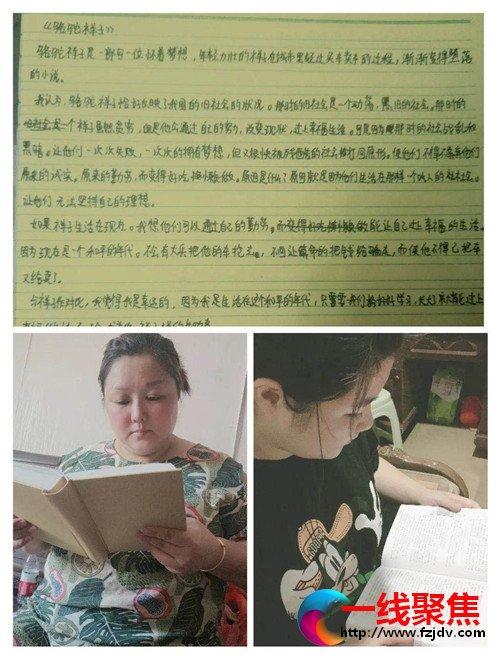 《骆驼祥子》
骆驼祥子是一部由一位怀着梦想，年轻力壮的祥子在城市里经过买车卖车的过程，渐渐变得堕落
的小说。
我认为，骆驼祥子恰好反映了我国的旧社会的状况。那时的旧社会是一个动荡，黑旧的社会。那时的
祥子虽然贫穷，但是他会通过自己的努力，改变现状，过上幸福生活。可是因为那时的社会
黑暗。让他们一次次失败，一次次的拥有梦想，但又很快被社会打回原形。使他们不得不丢弃他们
原来的诚实。原来的勤劳，而变得好吃懒做。原因是什么？原因就是因为他们生活在那样一个吃人的社会。
让他们无法坚持自己的理想。
如果祥子生活在现在。我想他们可以通过自己的勤劳。能让自己过上幸福的生活。
因为现在是一个和平的年代。不会有大兵把他的车抢走。不会让把钱给骗走，而使他不得已把车
又给卖了。
与祥子作对比，我觉得我是幸运的，因为我是生活在这个和平的年代，只需要我们好好学习，长大了就能过上
ENOUGH!
一线聚焦
http://www.fzjdv.com